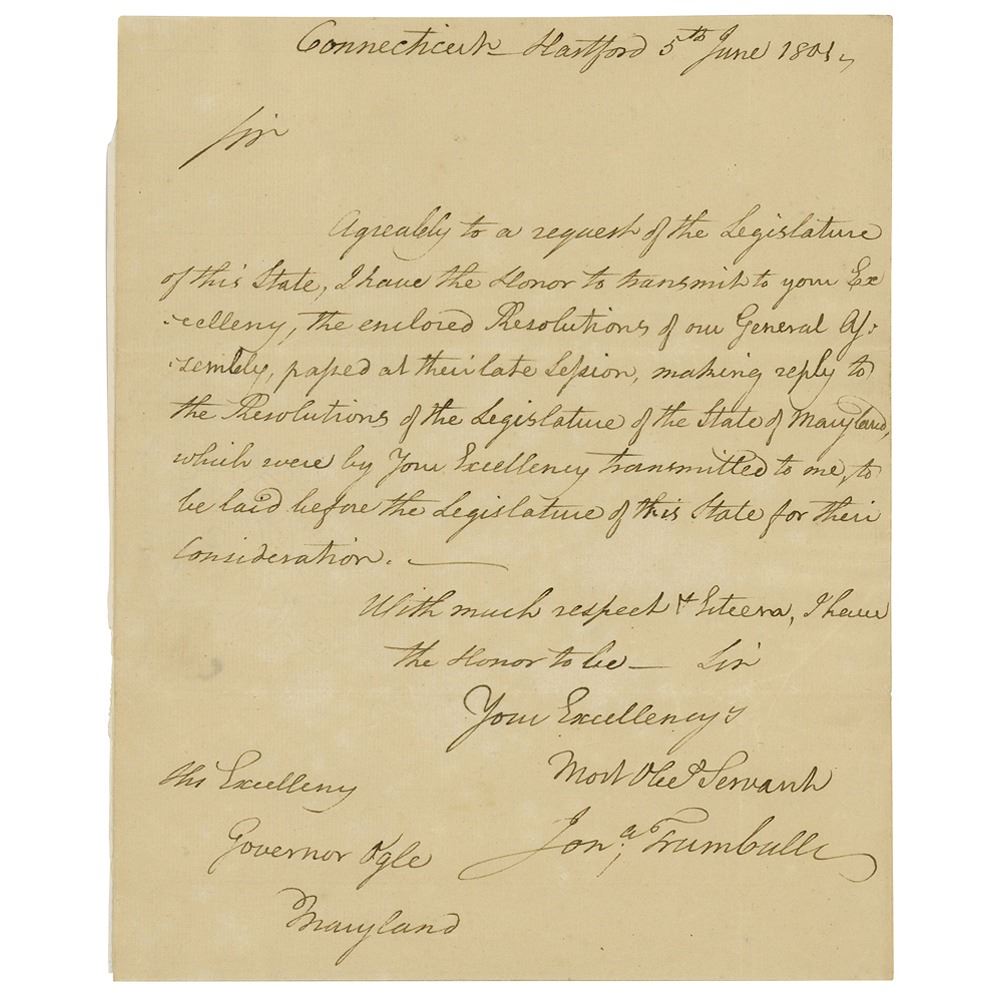 Connecticut Hartford 5th June 1801,
Sir
Agreably to a request of the Legislature
of this State, I have the Honor to transmit to your Ex
=cellency, the enclosed Resolutions of our General As=
=sembly, passed at their late Session, making reply to
the Resolutions of the Legislature of the State of Maryland,
which were by Your Excellency transmitted to me, to
be laid before the Legislature of this State for their
Consideration. —
With much respect & Esteem, I have
the Honor to be — Sir
Your Excellencys
Most Obedt Servant
Jona; Trumbull
His Excellency
Governor Ogle
Maryland